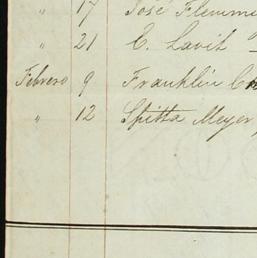 " 17 José Flemmi
" 21 C. Lavit
Febrero 9 Franklin Ch
" 12 Spitta Meyer,